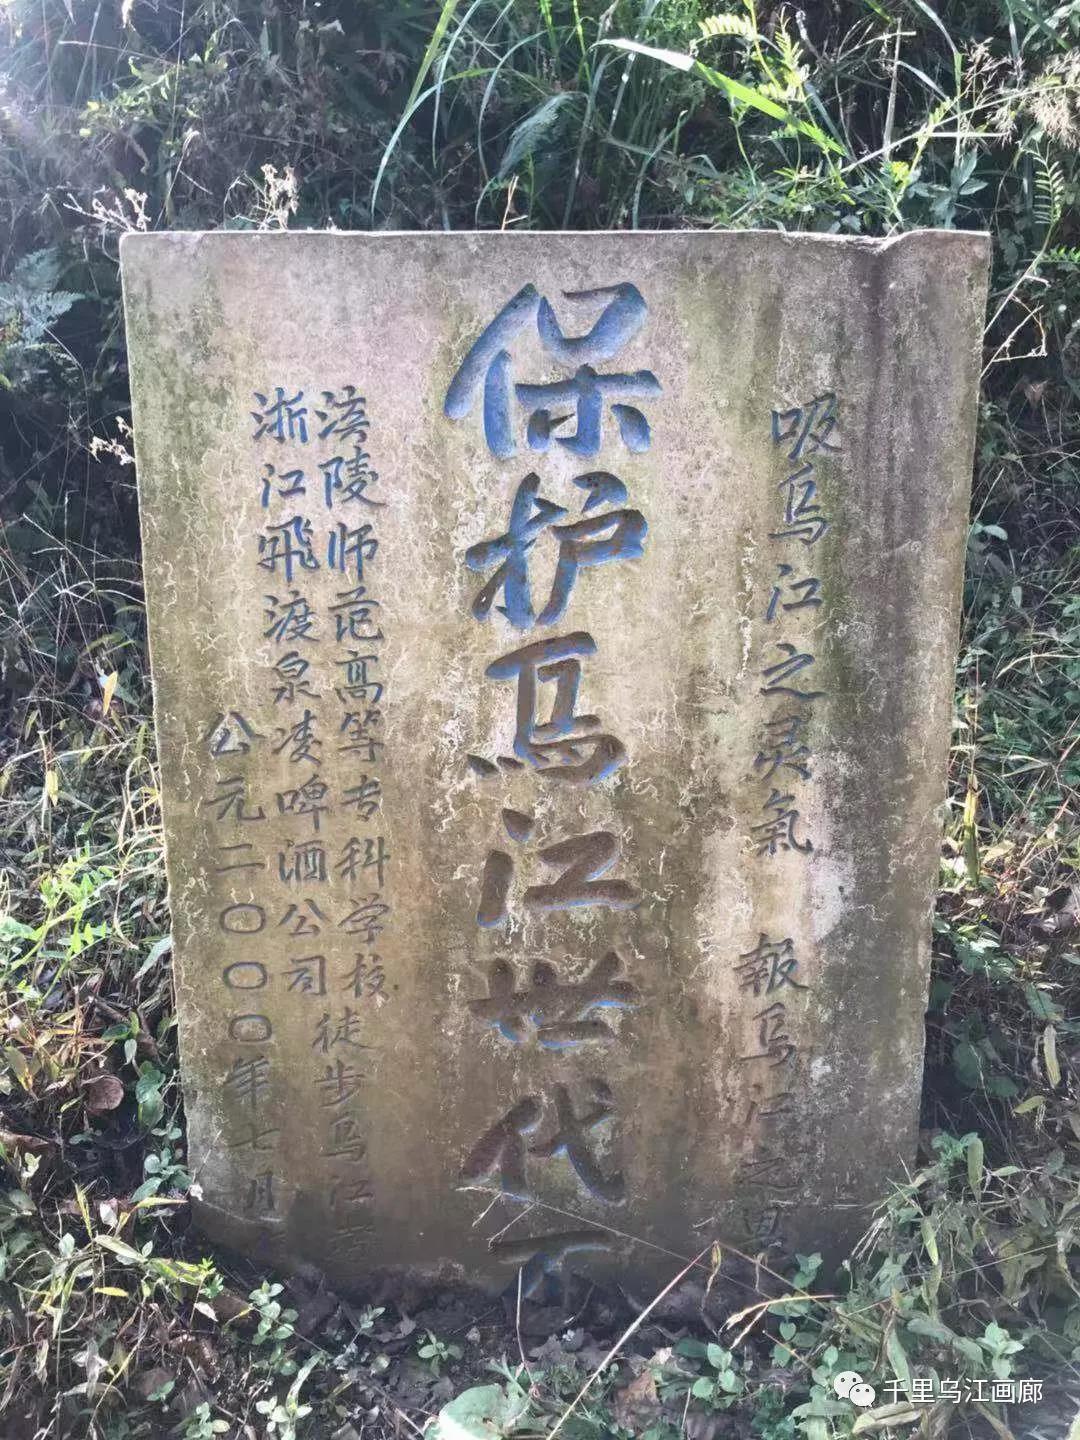 吸乌江之灵氣 報乌江之恩
保护乌江世代不
涪陵师范高等专科学校徒步乌江考
浙江飛渡泉凌啤酒公司
公元二〇〇〇年七月
千里乌江画廊